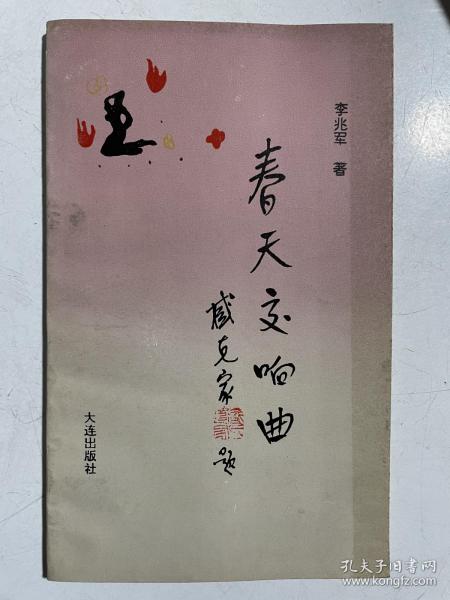 李兆军 著
春天交响曲
臧克家
题
大连出版社
孔夫子旧书网
www.kongfz.com